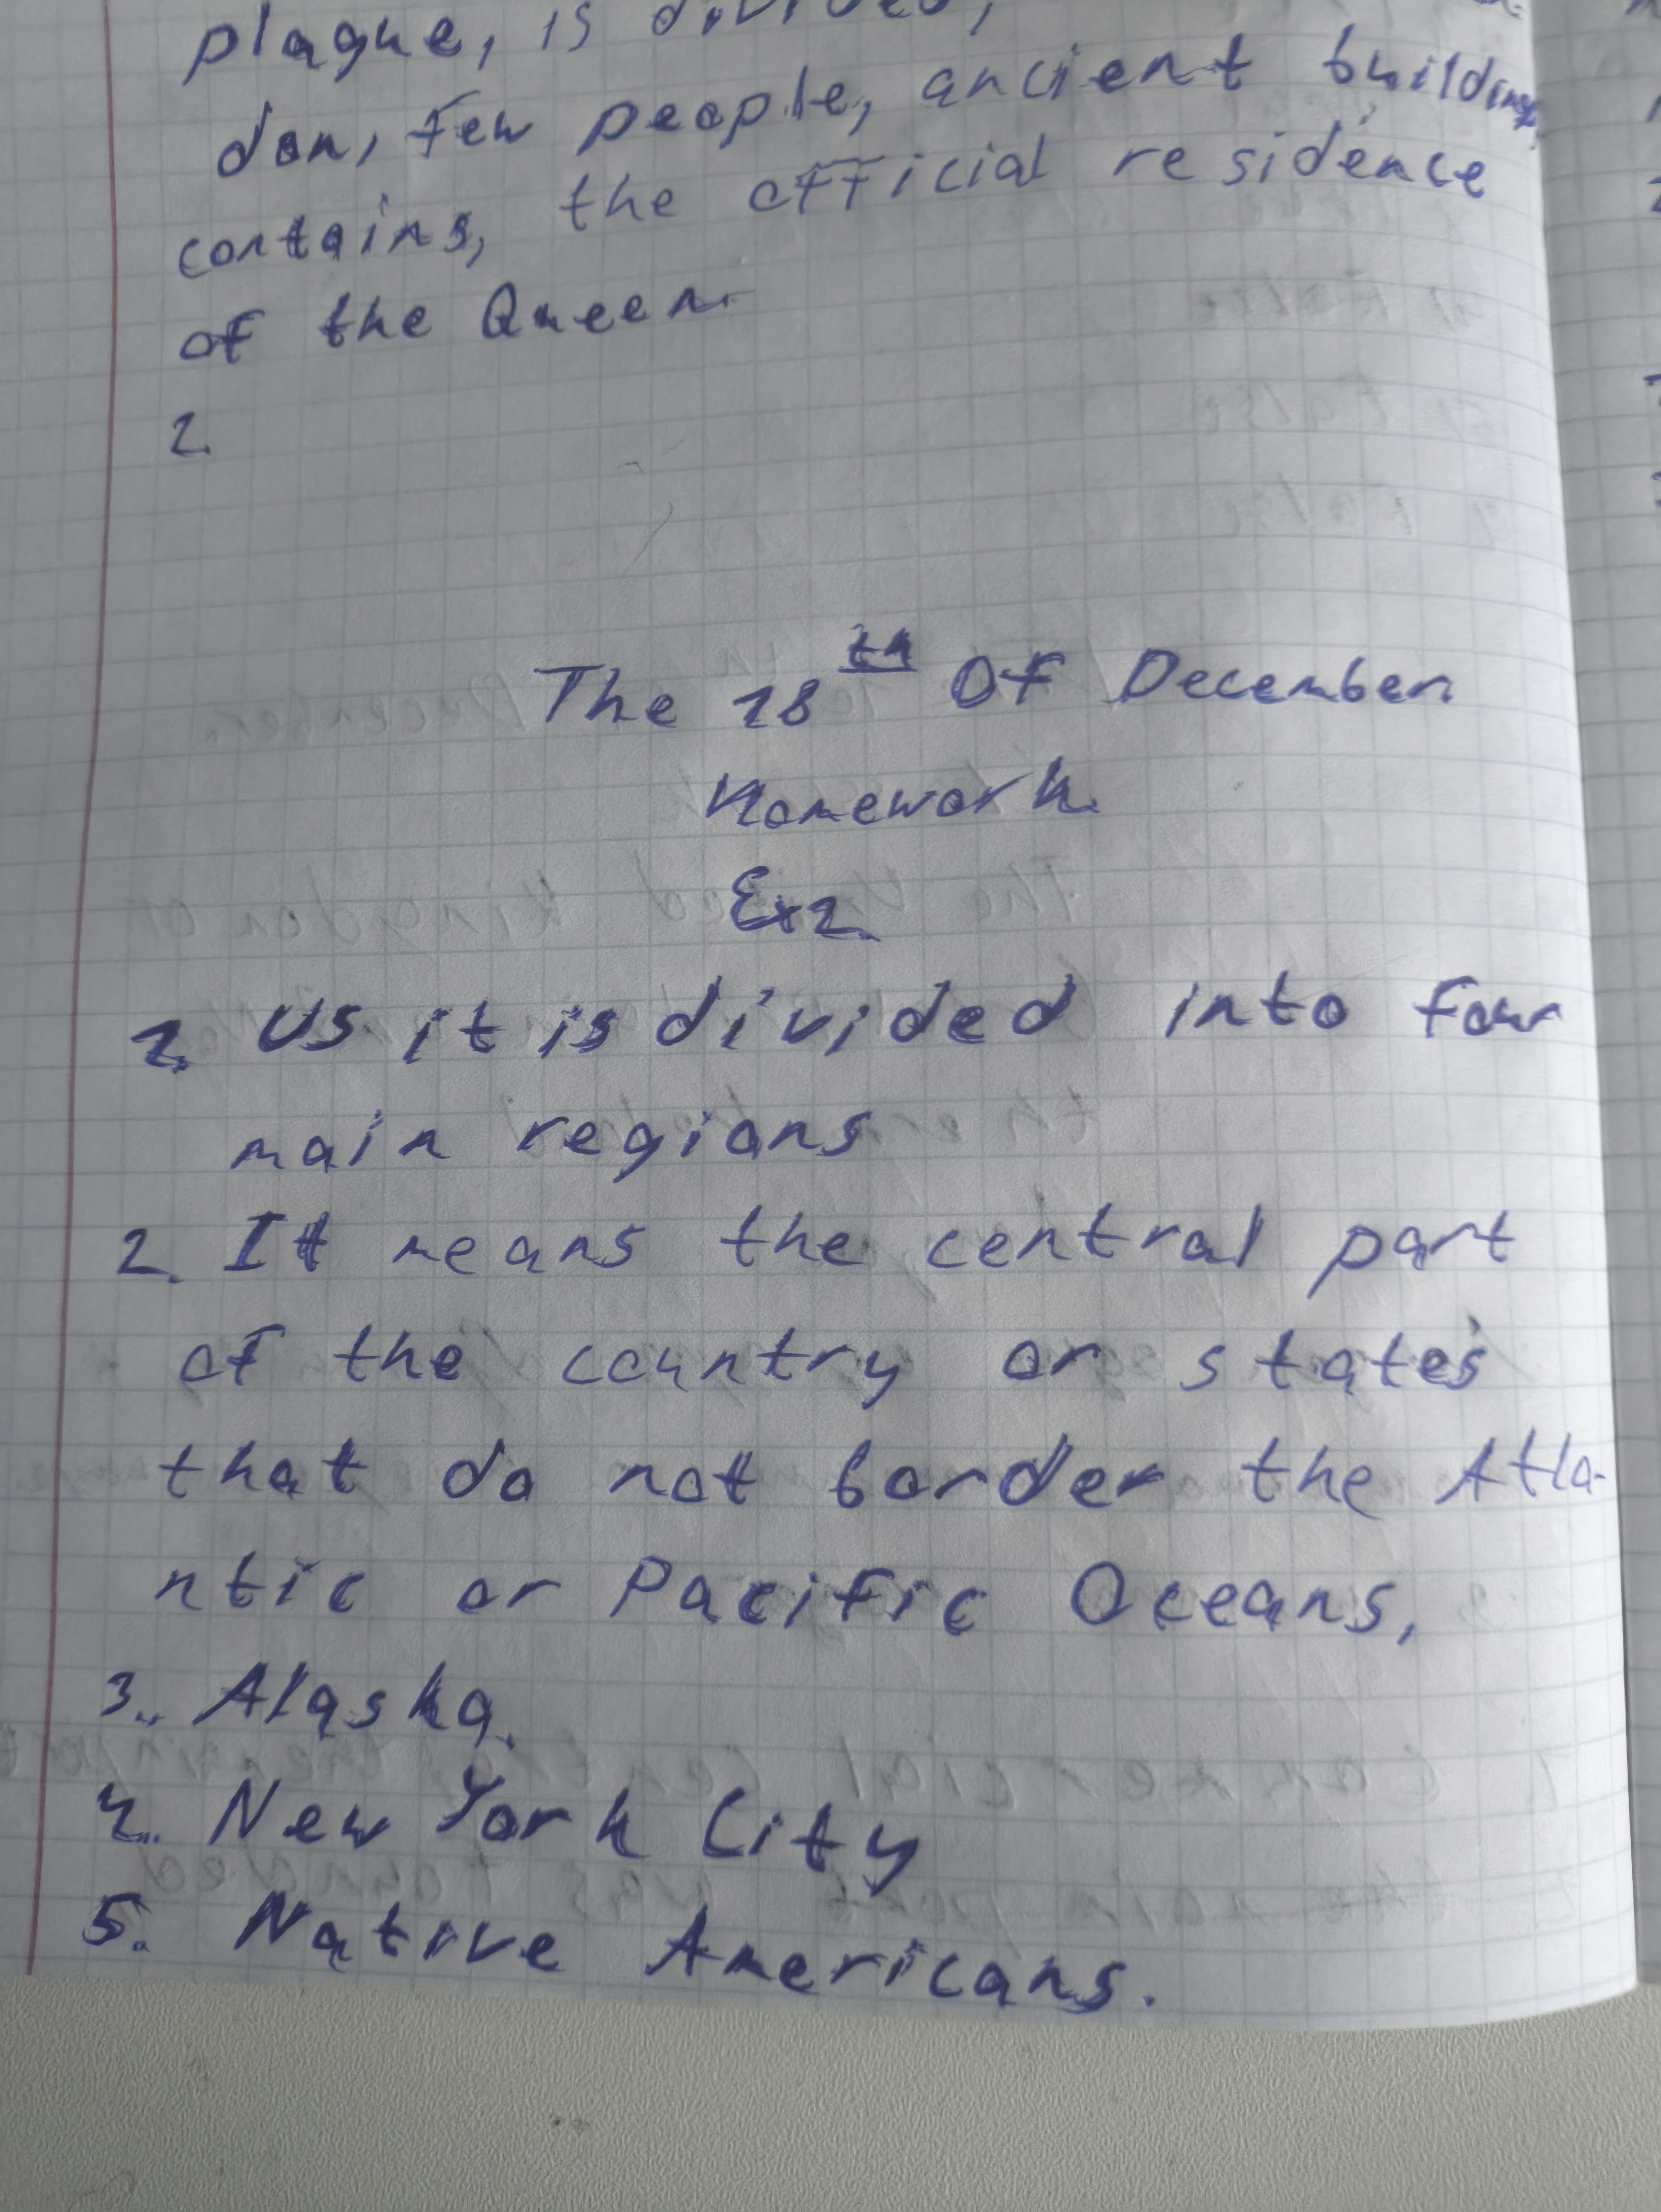 plague, is divided,
don, few people, ancient buildings,
contains, the official residence
of the Queen.
2.
The 18th Of December.
Homework.
Ex2.
1. US it is divided into four
main regions
2. It means the central part
of the country or states
that do not border the Atla-
ntic or Pacific Oceans,
3. Alaska.
4. New York City
5. Native Americans.